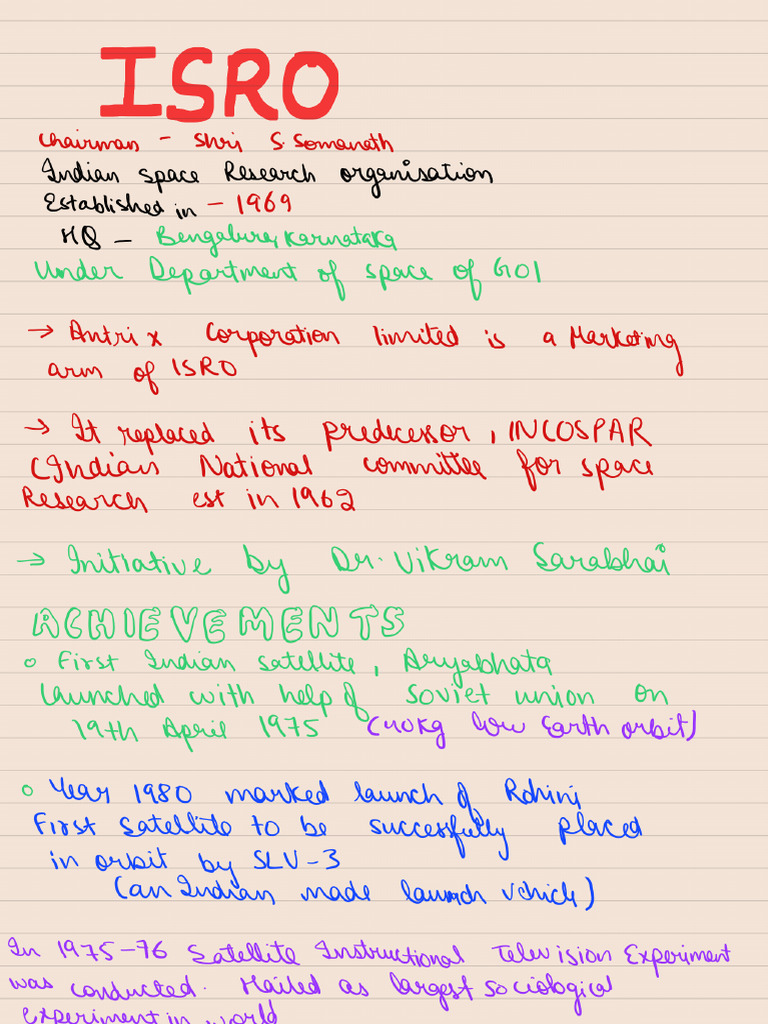 ISRO
Chairman - Shri S. Somanath
Indian space Research organisation
Established in - 1969
HQ - Bengaluru, Karnataka
Under Department of space of GOI
→ Antrix Corporation limited is a Marketing
arm of ISRO
→ It replaced its predecessor, INCOSPAR
(Indian National committee for space
Research est in 1962
→ Initiative by Dr. Vikram Sarabhai
ACHIEVEMENTS
○ First Indian satellite, Aryabhata
launched with help of Soviet union on
19th April 1975 (40kg low Earth orbit)
○ Year 1980 marked launch of Rohini
First satellite to be successfully placed
in orbit by SLV-3
(an Indian made launch vehicle)
In 1975-76 Satellite Instructional Television Experiment
was conducted. Hailed as largest sociological
experiment in world